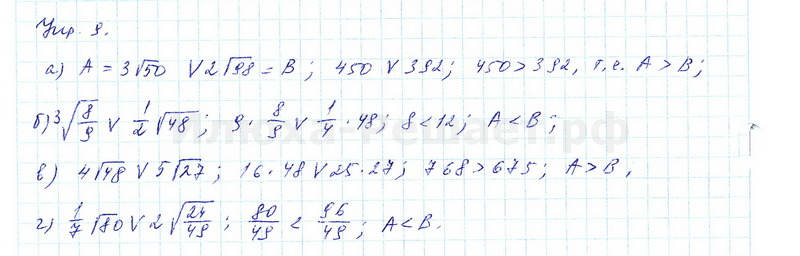 Упр. 9.
а) A = 3√50 V 2√98 = B ; 450 V 392; 450 > 392, т.е. A > B ;
б) 3√(8/9) V 1/2 √48 ; 9 · 8/9 V 1/4 · 48; 8 < 12; A < B ;
в) 4√48 V 5√27 ; 16 · 48 V 25 · 27; 768 > 675; A > B ,
г) 1/7 √80 V 2√(24/49) ; 80/49 < 96/49 ; A < B.
илюха-решает.рф